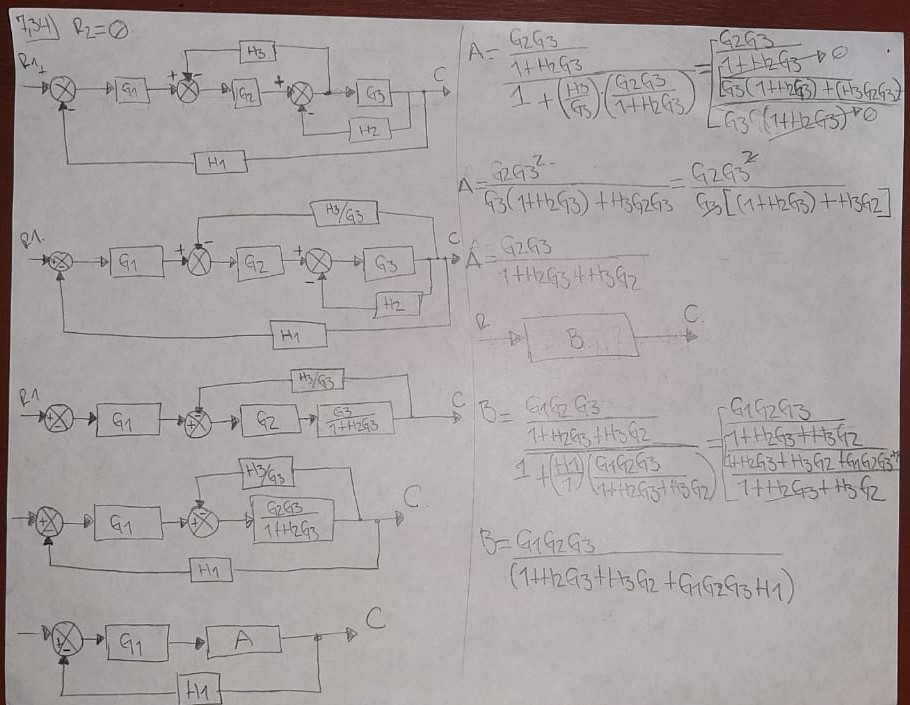 7,34) R2=0
R1
+
-
G1
+
-
H3
G2
+
-
G3
C
H2
H1
R1
+
-
G1
+
-
H3/G3
G2
+
-
G3
C
H2
H1
R1
+
-
G1
+
-
H3/G3
G2
G3/(1+H2G3)
C
+
-
G1
+
-
H3/G3
G2G3/(1+H2G3)
C
H1
+
-
G1
A
C
H1
A = (G2G3/(1+H2G3))/(1+(H3/G3)(G2G3/(1+H2G3))) = [(G2G3/(1+H2G3))/((G3(1+H2G3)+(H3G2G3))/(G3(1+H2G3)))
A = G2G3²/(G3(1+H2G3)+H3G2G3) = G2G3²/(G3[(1+H2G3)+H3G2])
A = G2G3/(1+H2G3+H3G2)
R
B
C
B = (G1G2G3/(1+H2G3+H3G2))/(1+(H1/1)(G1G2G3/(1+H2G3+H3G2))) = [(G1G2G3/(1+H2G3+H3G2))/((1+H2G3+H3G2+G1G2G3H1)/(1+H2G3+H3G2))
B = G1G2G3/(1+H2G3+H3G2+G1G2G3H1)